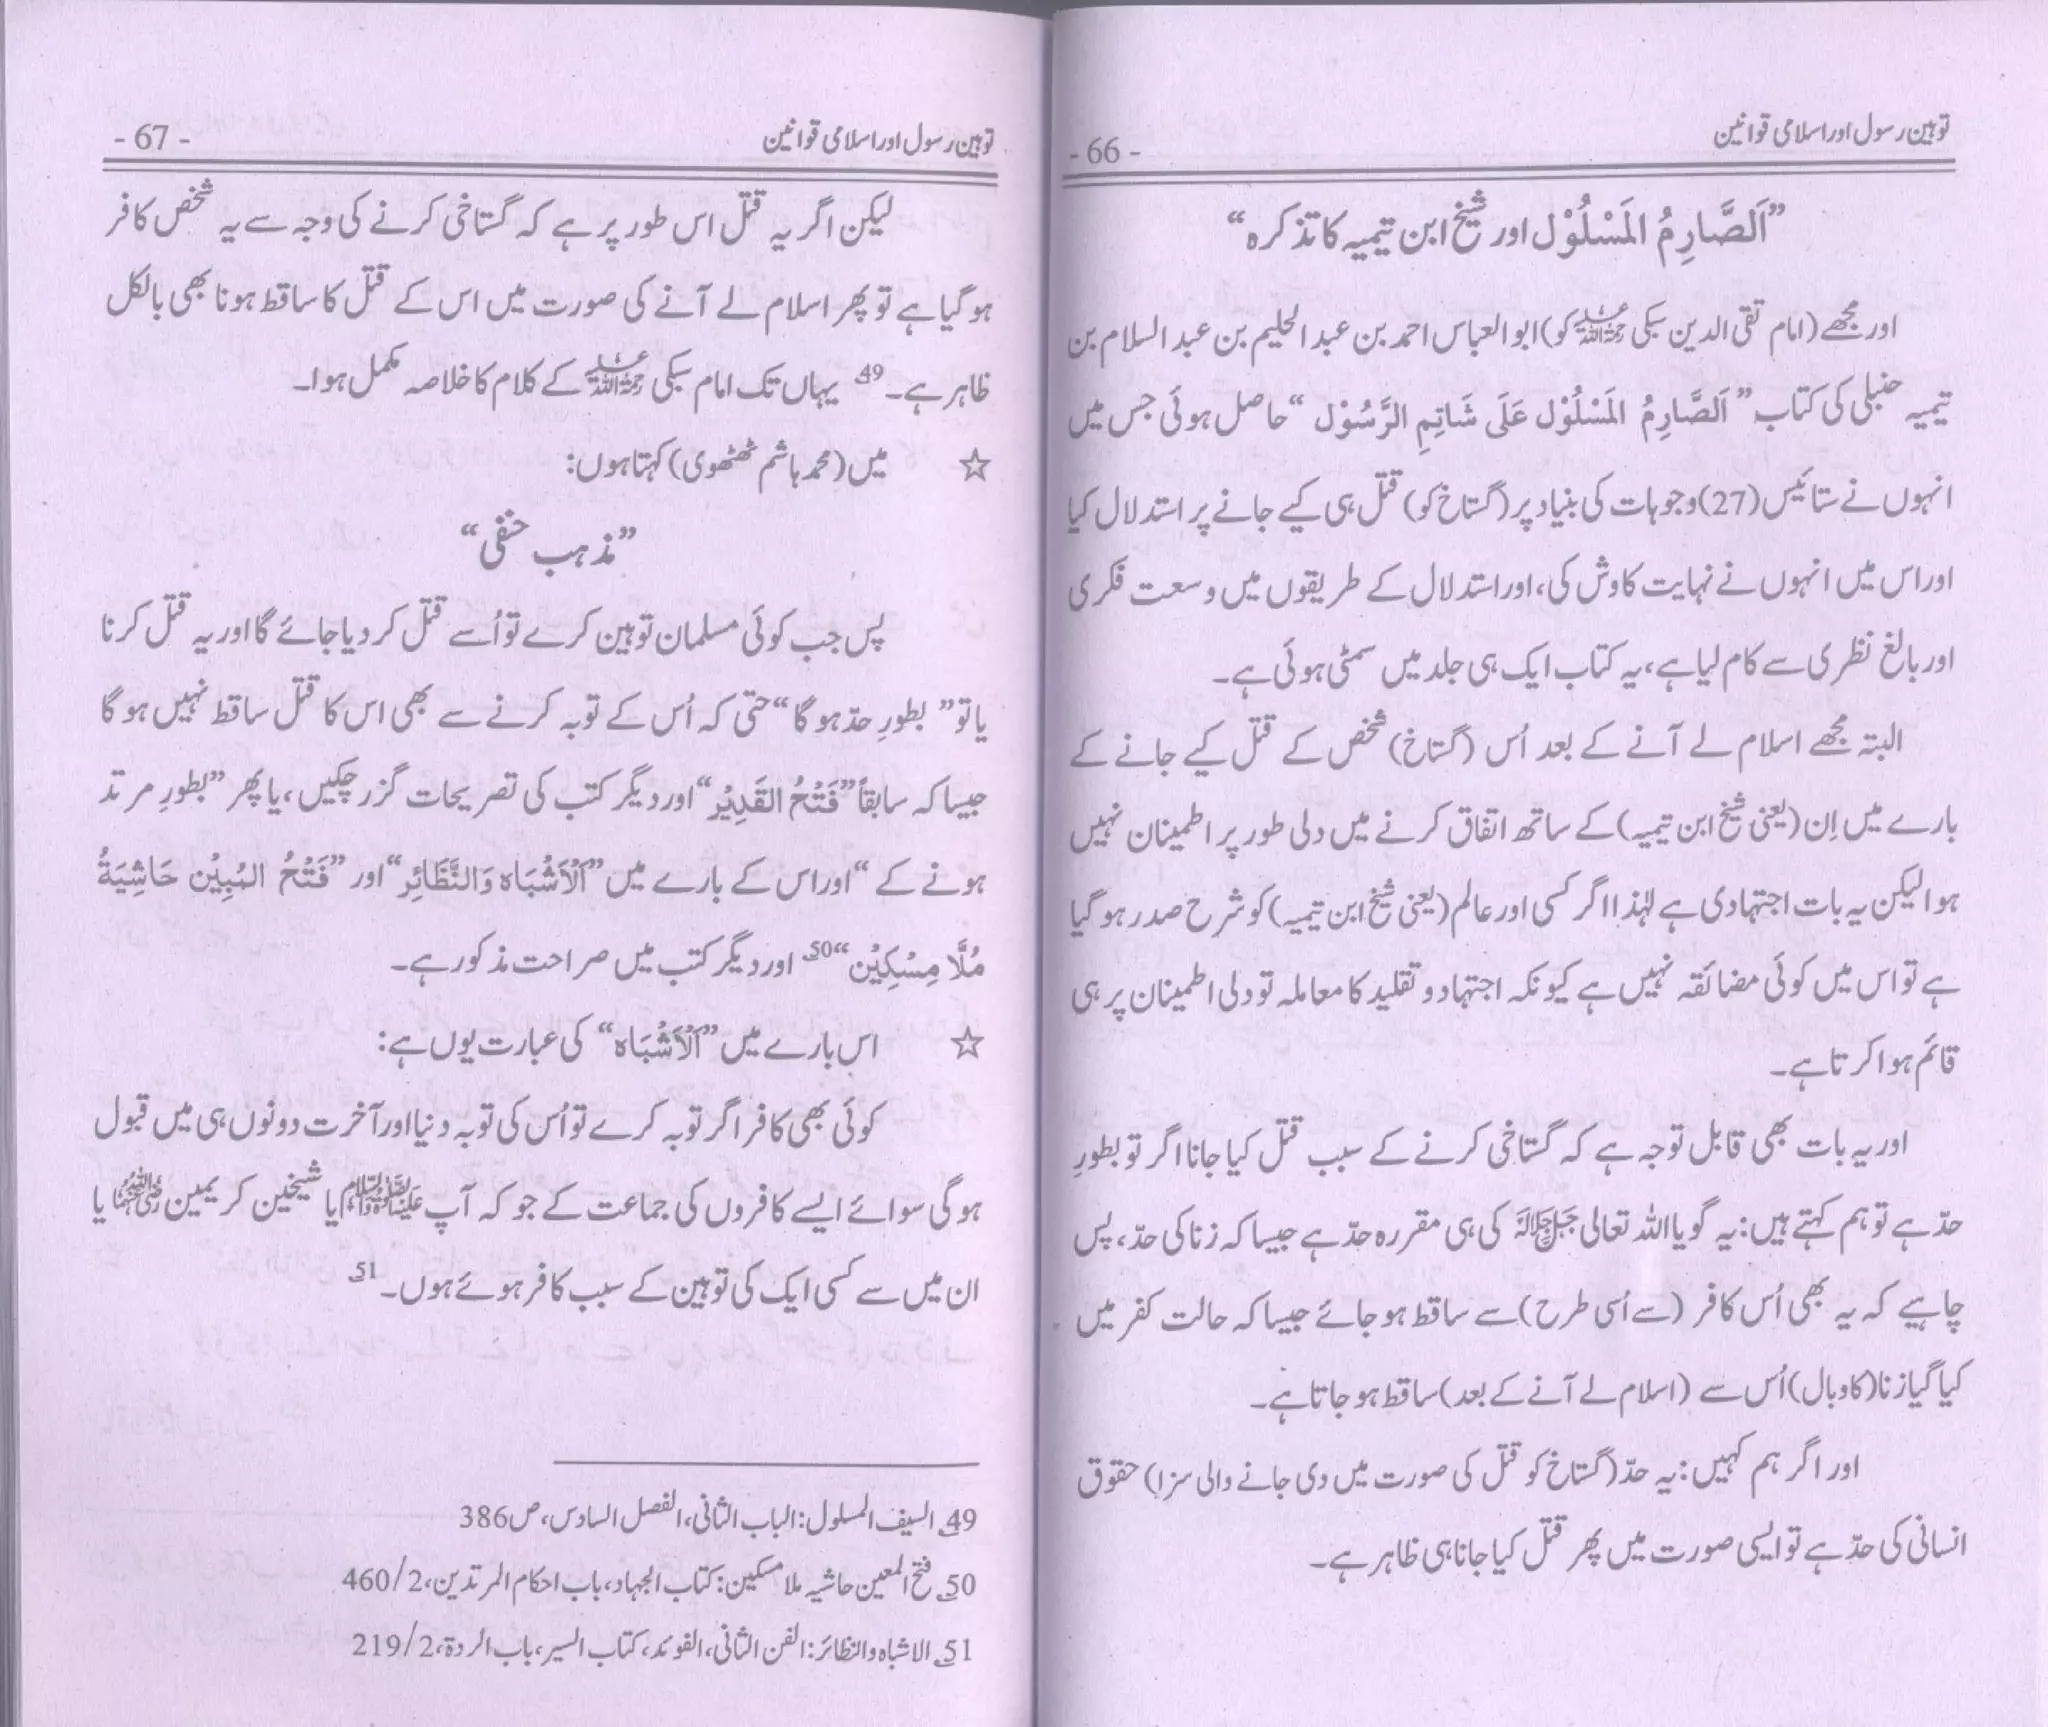 توہین رسول اور اسلامی قوانین
- 66 -
”اَلصَّارِمُ المَسْلُوْل اور شیخ ابن تیمیہ کا تذکرہ“
اور مجھے (امام تقی الدین سبکی رحمۃاللہ علیہ کو) ابو العباس احمد بن عبد الحلیم بن عبد السلام بن
تیمیہ حنبلی کی کتاب ”اَلصَّارِمُ المَسْلُوْل عَلَی شَاتِمِ الرَّسُوْل“ حاصل ہوئی جس میں
انہوں نے ستائیس (27) وجوہات کی بنیاد پر (گستاخ کو) قتل ہی کیے جانے پر استدلال کیا
اور اس میں انہوں نے نہایت کاوش کی، اور استدلال کے طریقوں میں وسعت فکری
اور بالغ نظری سے کام لیا ہے، یہ کتاب ایک ہی جلد میں سمٹی ہوئی ہے۔
البتہ مجھے اسلام لے آنے کے بعد اُس (گستاخ) شخص کے قتل کیے جانے کے
بارے میں اِن (یعنی شیخ ابن تیمیہ) کے ساتھ اتفاق کرنے میں دلی طور پر اطمینان نہیں
ہوا لیکن یہ بات اجتہادی ہے لہٰذا اگر کسی اور عالم (یعنی شیخ ابن تیمیہ) کو شرح صدر ہو گیا
ہے تو اس میں کوئی مضائقہ نہیں ہے کیونکہ اجتہاد و تقلید کا معاملہ تو دلی اطمینان پر ہی
قائم ہوا کرتا ہے۔
اور یہ بات بھی قابل توجہ ہے کہ گستاخی کرنے کے سبب قتل کیا جانا اگر تو بطورِ
حدّ ہے تو ہم کہتے ہیں: یہ گویا اللہ تعالی جل جلالہ کی ہی مقررہ حدّ ہے جیسا کہ زنا کی حدّ، پس
چاہیے کہ یہ بھی اُس کافر (سے اُسی طرح) سے ساقط ہو جائے جیسا کہ حالت کفر میں
کیا گیا زنا (کا وبال) اُس سے (اسلام لے آنے کے بعد) ساقط ہو جاتا ہے۔
اور اگر ہم کہیں: یہ حدّ (گستاخ کو قتل کی صورت میں دی جانے والی سزا) حقوق
انسانی کی حدّ ہے تو ایسی صورت میں پھر قتل کیا جانا ہی ظاہر ہے۔
توہین رسول اور اسلامی قوانین
- 67 -
لیکن اگر یہ قتل اس طور پر ہے کہ گستاخی کرنے کی وجہ سے یہ شخص کافر
ہو گیا ہے تو پھر اسلام لے آنے کی صورت میں اس کے قتل کا ساقط ہونا بھی بالکل
ظاہر ہے۔ 49 یہاں تک امام سبکی رحمۃاللہ علیہ کے کلام کا خلاصہ مکمل ہوا۔
☆ میں (محمد ہاشم ٹھٹھوی) کہتا ہوں:
”مذہب حنفی“
پس جب کوئی مسلمان توہین کرے تو اُسے قتل کر دیا جائے گا اور یہ قتل کرنا
یا تو ”بطورِ حدّ ہو گا“ حتی کہ اُس کے توبہ کرنے سے بھی اس کا قتل ساقط نہیں ہو گا
جیسا کہ سابقاً ”فَتْحُ القَدِیْر“ اور دیگر کتب کی تصریحات گزر چکیں، یا پھر ”بطورِ مرتد
ہونے کے“ اور اس کے بارے میں ”اَلْاَشْبَاہ وَالنَّظَائِر“ اور ”فَتْحُ المُبِیْن حَاشِیَۃُ
مُلَّا مِسْکِیْن“ 50 اور دیگر کتب میں صراحت مذکور ہے۔
☆ اس بارے میں ”اَلْاَشْبَاہ“ کی عبارت یوں ہے:
کوئی بھی کافر اگر توبہ کرے تو اُس کی توبہ دنیا اور آخرت دونوں ہی میں قبول
ہو گی سوائے ایسے کافروں کی جماعت کے جو کہ آپ علیہ الصلوۃ والسلام یا شیخین کریمین رضی اللہ عنہما یا
ان میں سے کسی ایک کی توہین کے سبب کافر ہوئے ہوں۔ 51
49 السیف المسلول: الباب الثانی، الفصل السادس، ص386
50 فتح المعین حاشیہ ملا مسکین: کتاب الجہاد، باب احکام المرتدین، 460/2
51 الاشباہ والنظائر: الفن الثانی، الفوئد، کتاب السیر، باب الردۃ، 219/2